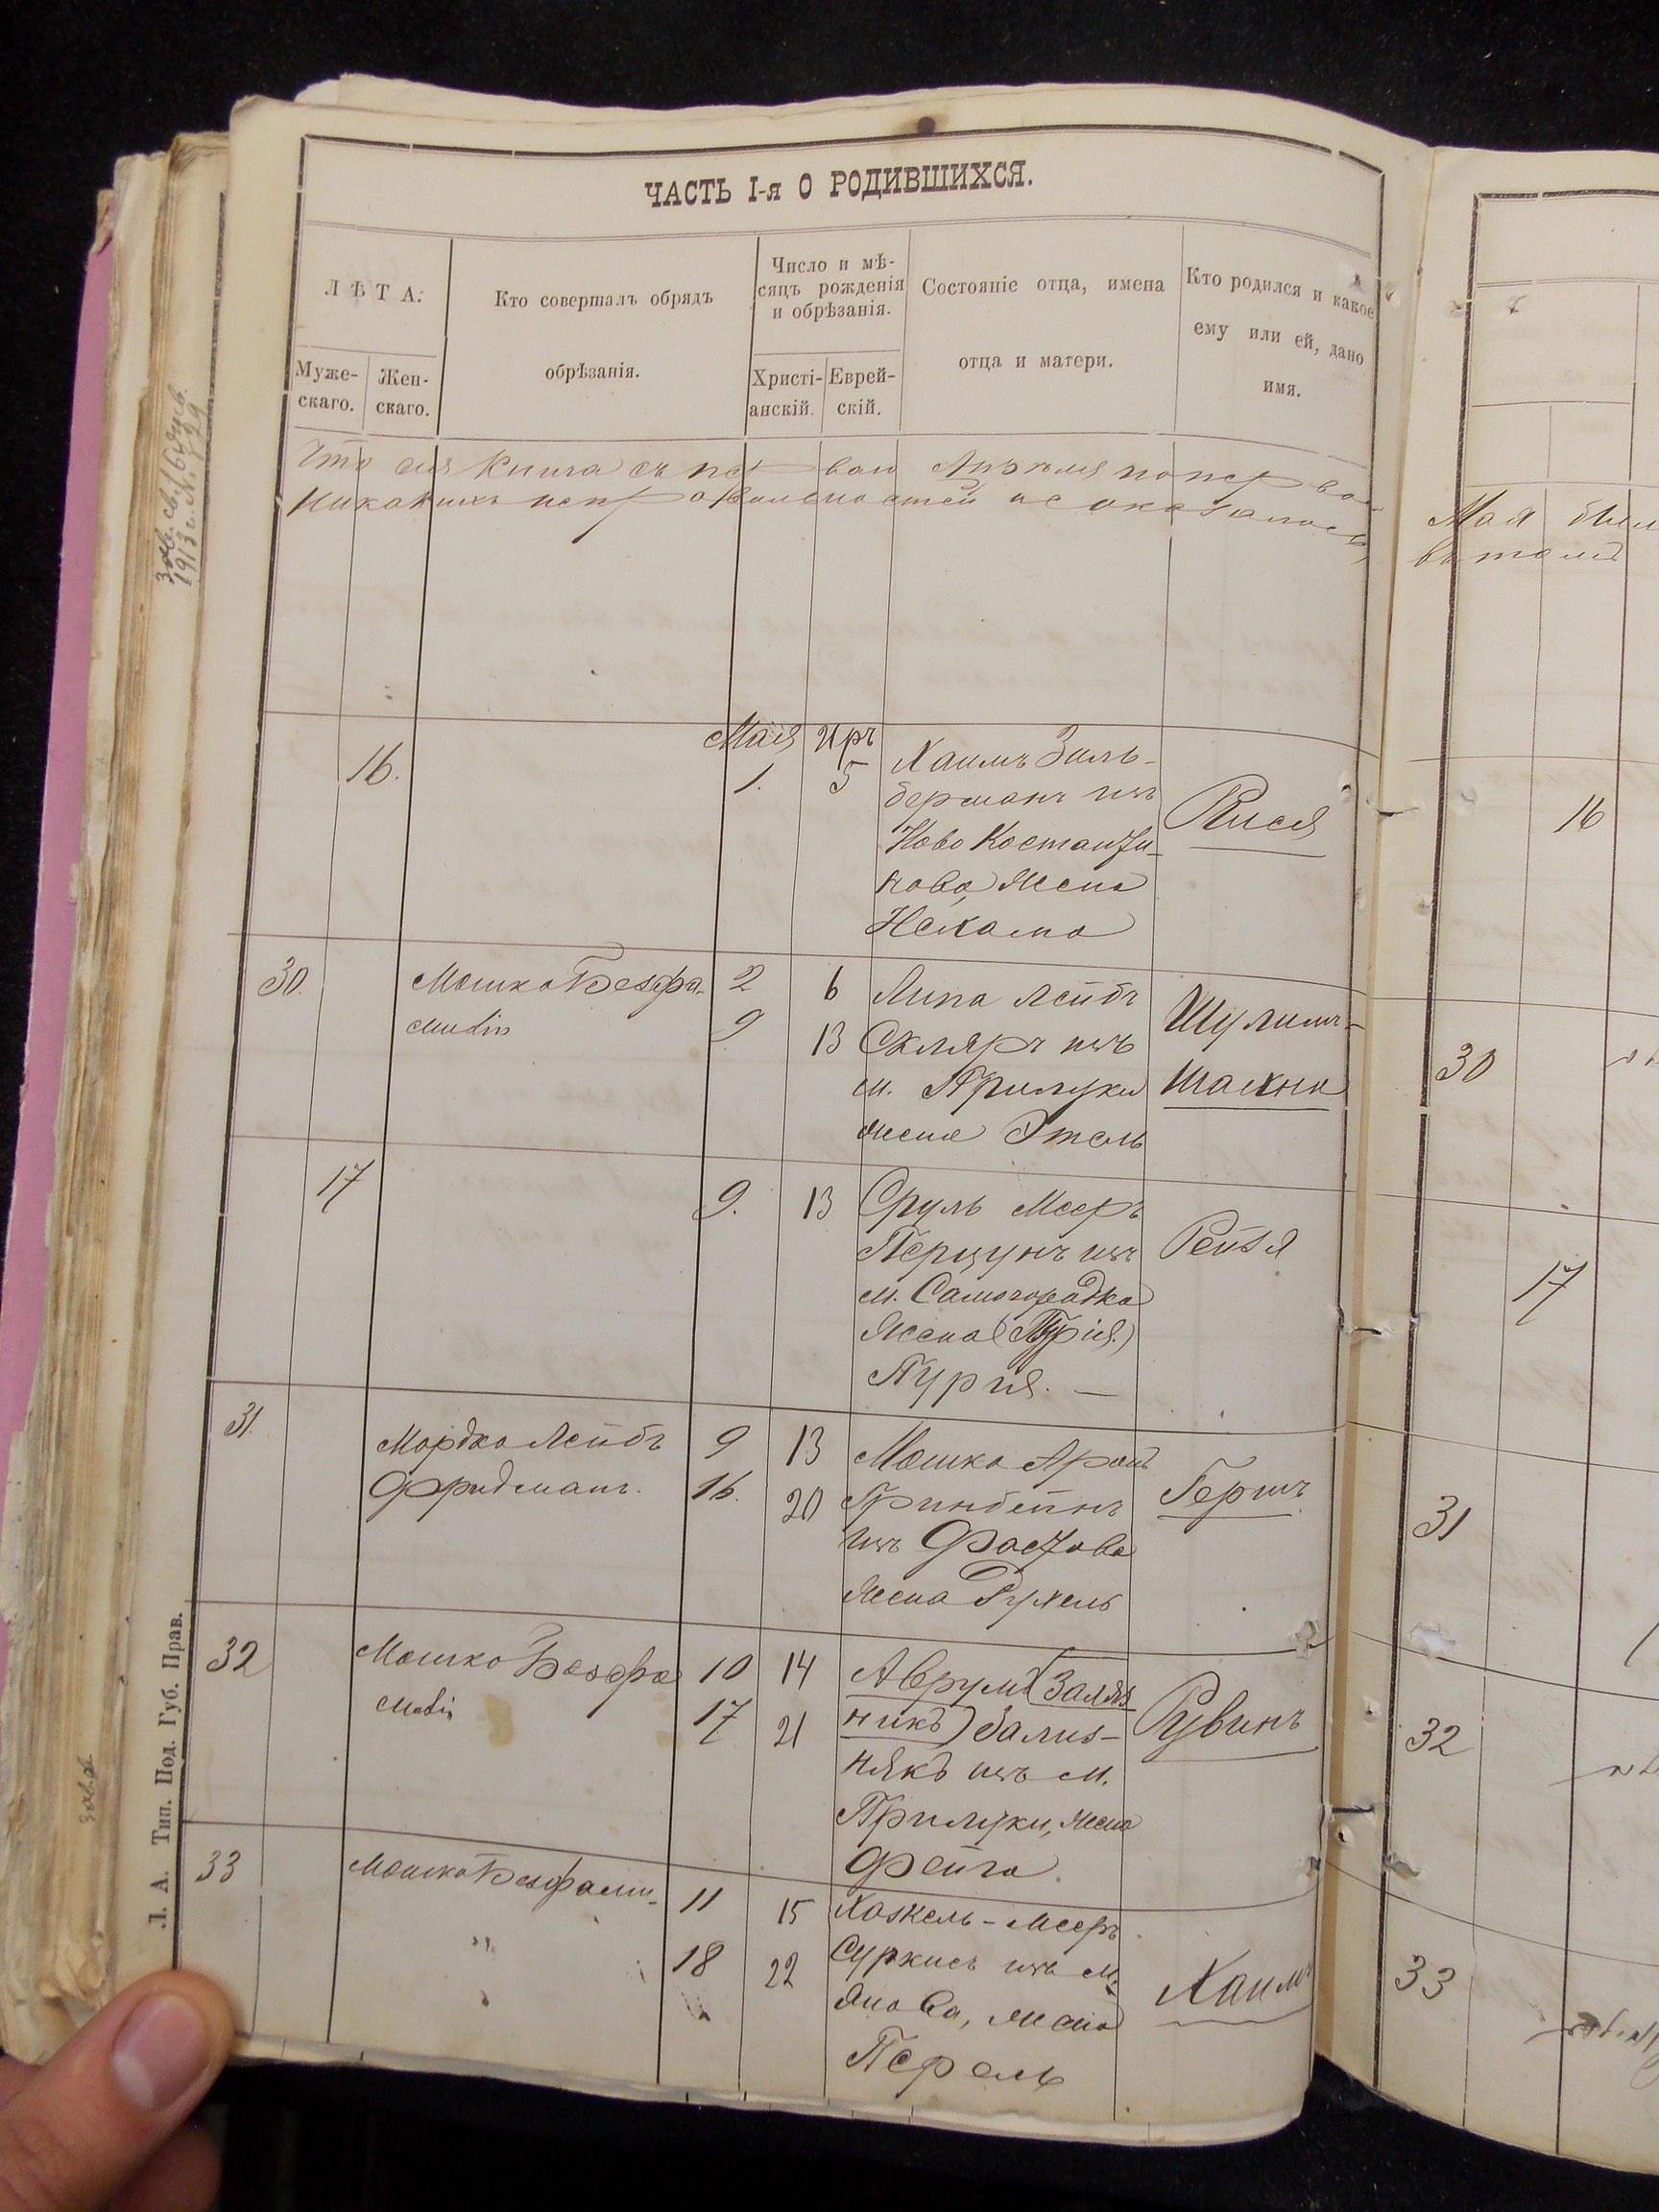 ЧАСТЬ I-я О РОДИВШИХСЯ.
ЛѢТА:
Муже-
скаго.
Жен-
скаго.
Кто совершалъ обрядъ
обрѣзанія.
Число и мѣ-
сяцъ рожденія
и обрѣзанія.
Христі-
анскій.
Еврей-
скій.
Состояніе отца, имена
отца и матери.
Кто родился и какое
ему или ей, дано
имя.
Что сія книга съ первого Апреля по перваго
никакихъ неправильностей не оказалось
Мая
въ томъ
16.
Мая Иръ
1. 5
Хаимъ Зиль-
берманъ изъ
Ново Костанти-
нова, жена
Нехама
Рися
30.
Мошко Безфа-
милін
2 6
9 13
Липа Лейбъ
Скляръ изъ
м. Прилуки
жена Этель
Шулимъ-
Шахна
17
9. 13
Сруль Меер
Перцунъ изъ
м. Самогородка
жена (Пурія.)
Пурия. —
Рейзя
31.
Мордко Лейбъ
Фридманъ.
9 13
16. 20
Мошко Аронъ
Гринбейнъ
изъ Фастова
жена Рухель
Гершъ
32
Мошко Безфа
милін
10 14
17 21
Аврумъ (Заляз
никъ) Зализ-
някъ изъ м.
Прилуки, жена
Фейга
Рувинъ
33
Мошко Безфами-
"
11 15
18 22
Хаскель-Меер
Суркисъ изъ м.
Янова, жена
Перель
Хаимъ
16
30
17
31
32
33
Л. А. Тип. Под. Губ. Прав.
1913 г. № 29